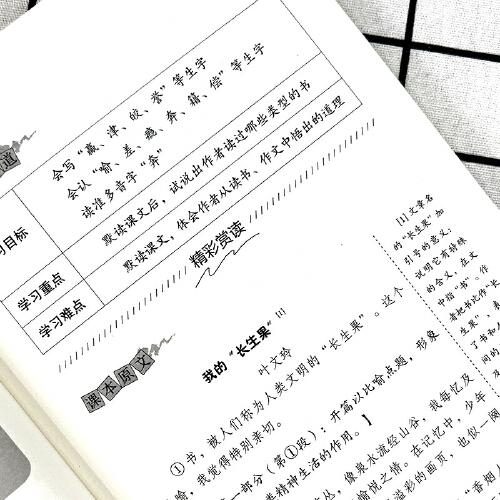 道
习目标
会写“赢、津、皎、誉”等生字
会认“偷、羞、瘾、奔、籍、偿”等生字
读准多音字“奔”
学习重点
默读课文后，试说出作者读过哪些类型的书
学习难点
默读课文，体会作者从读书、作文中悟出的道理
精彩赏读
课本原文
我的“长生果” [1]
叶文玲
①书，被人们称为人类文明的“长生果”。这个
喻，我觉得特别亲切。
一部分（第①段）：开篇以比喻点题，形象
类精神生活的作用。】
像泉水流经山谷，我每忆及
愉悦之情。在记忆中，少年
彩的画页，也似一阕
“香烟
[1]文章名
的“长生果”加
引号的意义：
说明它有特殊
的含义，在文
中指“书”。作
者把书比作“长
生果”，表
了书如
间的
及